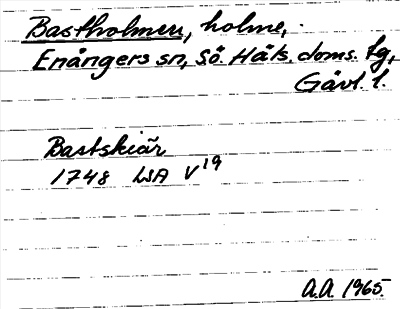 Bastholmen, holme,
Enångers sn, Sö. Häls. doms. tg,
Gävl. l.
Bastskiär
1748 LSA V19
A.A. 1965.